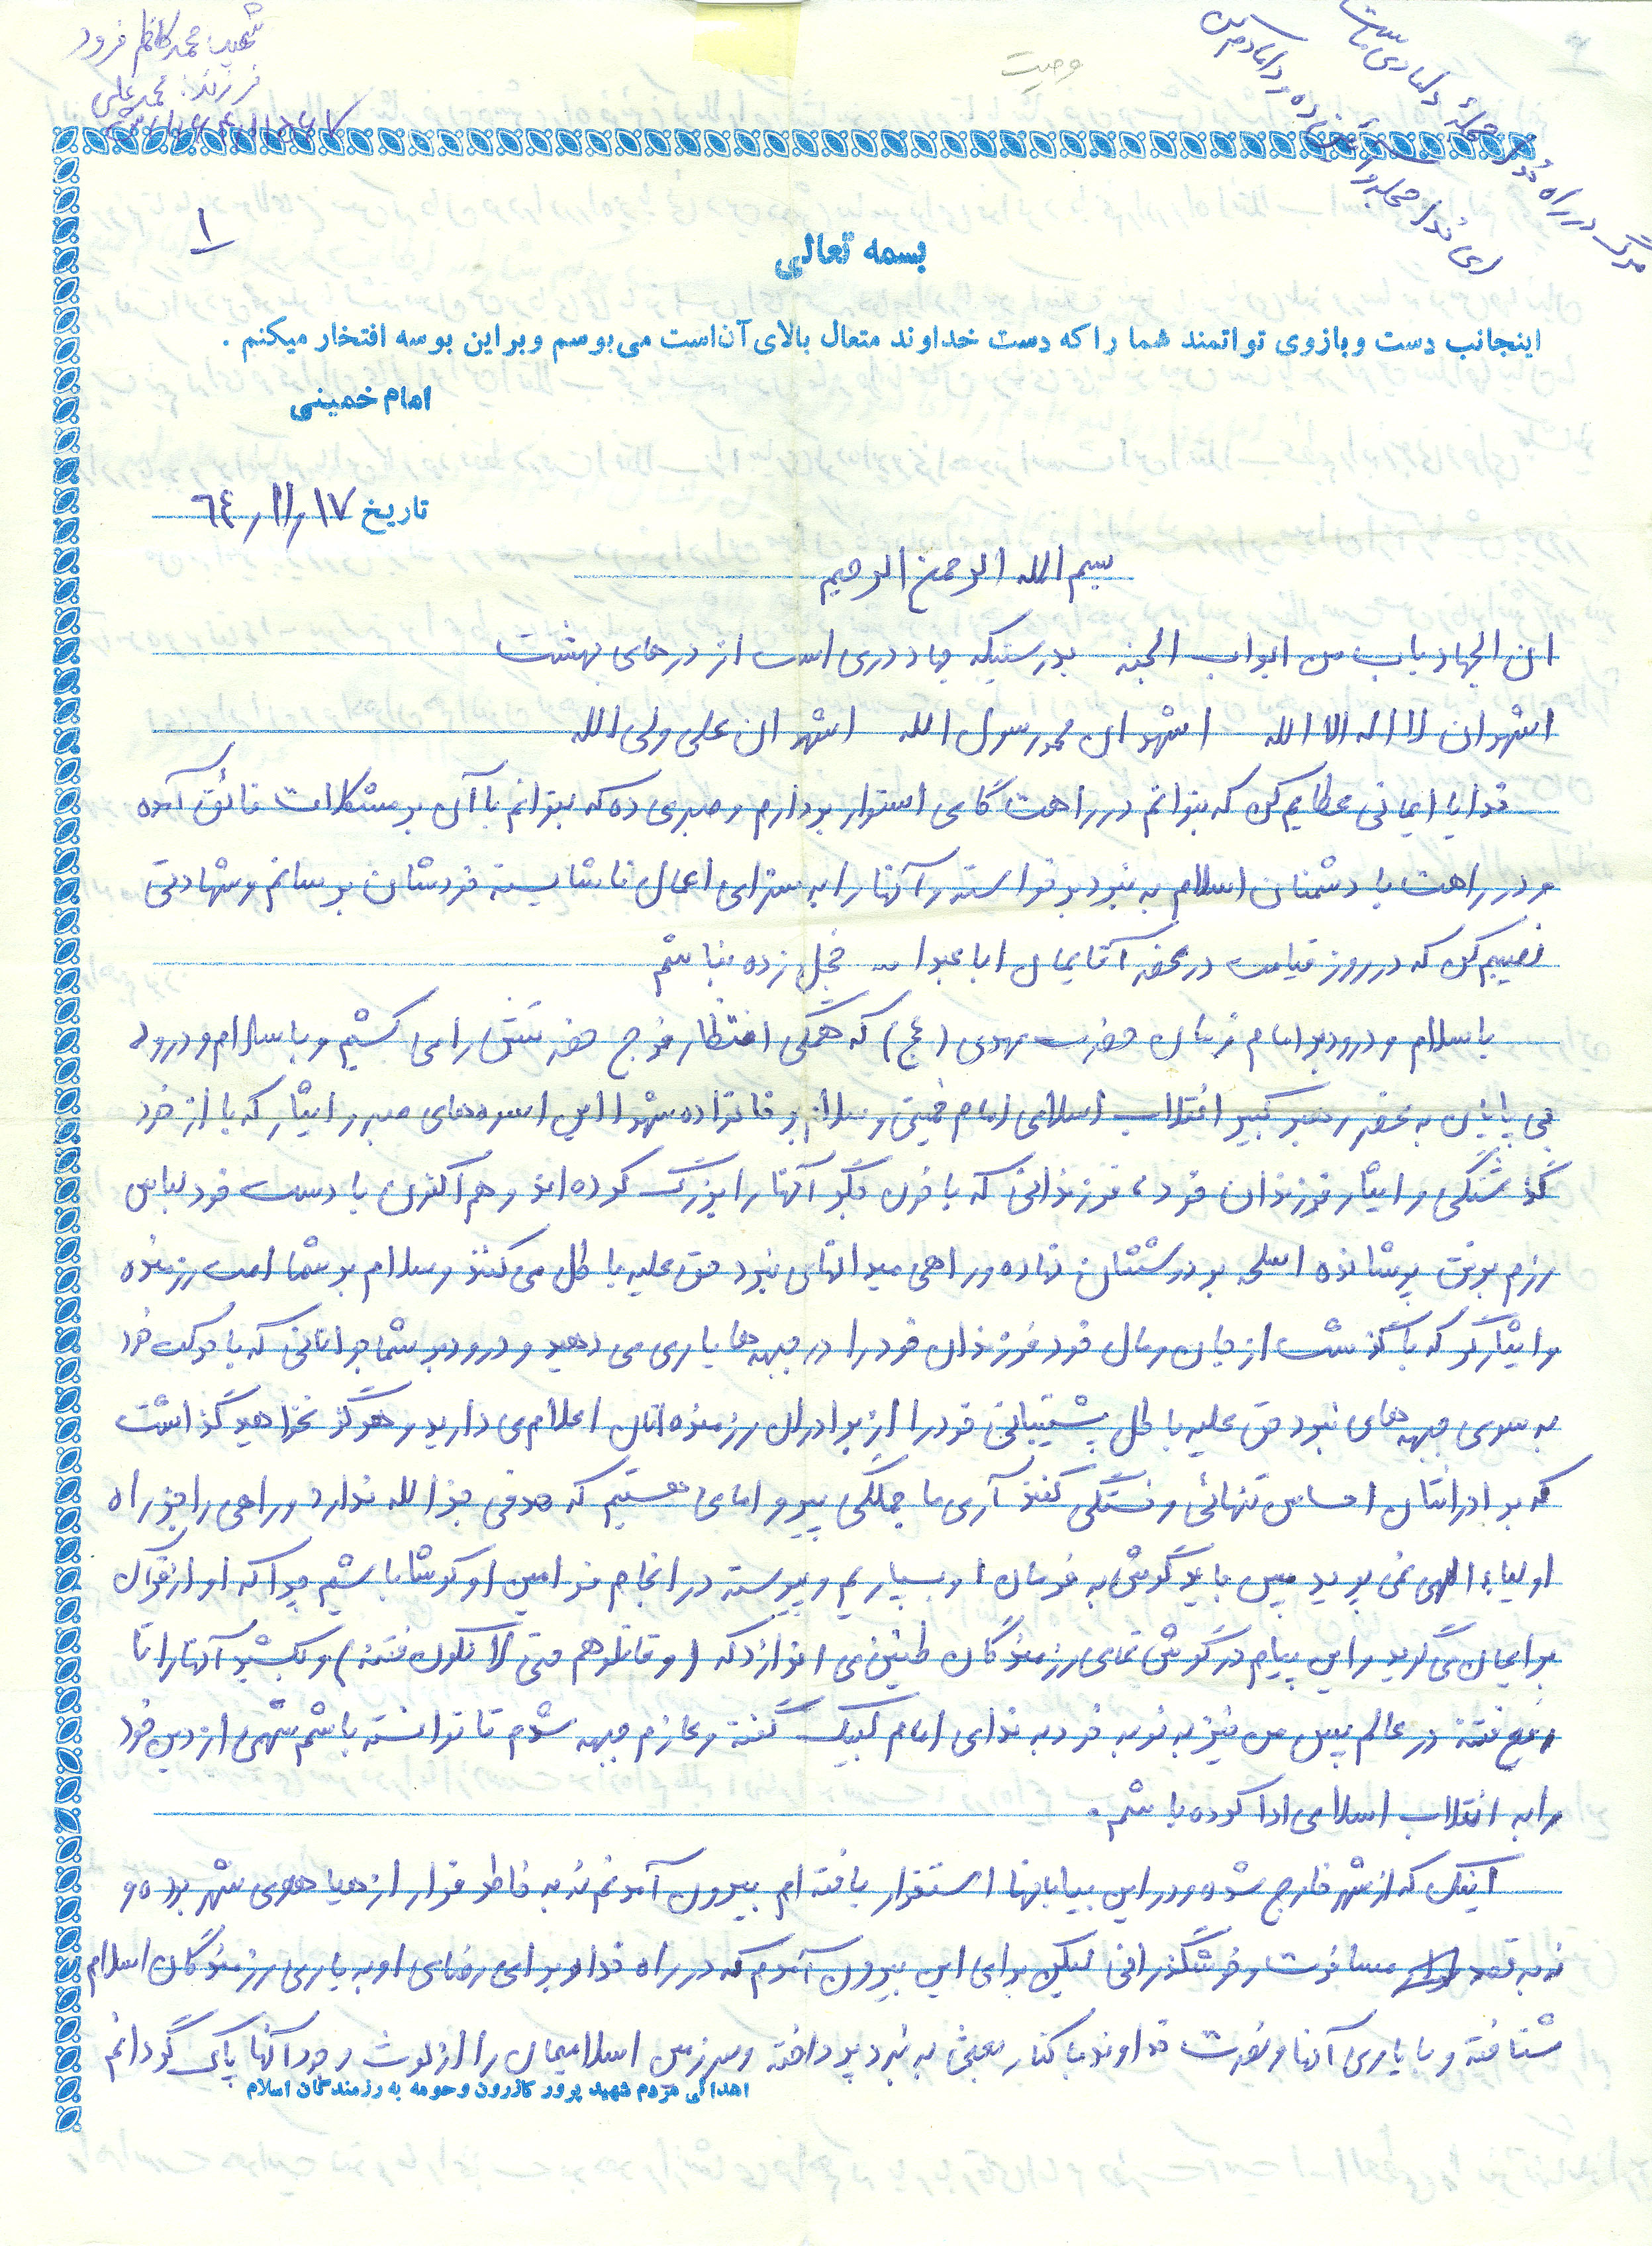 شهید: محمد کاظم فرود
فرزند: محمد علی
وصیت
مرگ در راه خدا حجلهٔ دامادی ماست
۱
بسمه تعالی
اینجانب دست و بازوی توانمند شما را که دست خداوند متعال بالای آن است می‌بوسم و بر این بوسه افتخار میکنم .
امام خمینی
تاریخ ۱۷ / ۱۱ / ٦٤
بسم الله الرحمن الرحیم
ان الجهاد باب من ابواب الجنه بدرستیکه جهاد دری است از درهای بهشت
اشهد ان لا اله الا الله اشهد ان محمد رسول الله اشهد ان علی ولی الله
خدایا ایمانی عطایم کن که بتوانم در راهت گامی استوار بردارم و صبری ده که بتوانم با آن بر مشکلات فائق آمده
و در راهت با دشمنان اسلام به نبرد برخواسته و آنها را به سزای اعمال ناشایسته خودشان برسانم و شهادتی
نصیبم کن که در روز قیامت در محضر آقایمان ابا عبدا... خجل زده نباشم
با سلام و درود بر امام زمان حضرت مهدی (عج) که همگی انتظار فرج حضرتش را می کشیم و با سلام و درود
بی پایان به محضر رهبر کبیر انقلاب اسلامی امام خمینی و سلام بر خانواده شهدا این اسوه‌های صبر و ایثار که با از خود
گذشتگی و ایثار فرزندان خود، فرزندانی که با خون جگر آنها را بزرگ کرده اند و هم اکنون با دست خود لباس
رزم برتن پوشانده اسلحه بر دوششان نهاده و راهی میدانهای نبرد حق علیه باطل می کنند و سلام بر شما امت رزمنده
و ایثارگر که با گذشت از جان و مال خود فرزندان خود را در جبهه ها یاری می دهید و درود بر شما جوانانی که با حرکت خود
به سوی جبهه های نبرد حق علیه باطل پشتیبانی خود را از برادران رزمنده اتان اعلام می دارید و هرگز نخواهید گذاشت
که برادرانتان احساس تنهائی و خستگی کنند آری ما جملگی پیرو امامی هستیم که هدفی جز الله ندارد و راهی را جز راه
اولیاء الهی نمی پوید پس باید گوش به فرمان او بسپاریم و پیوسته در انجام فرامین او کوشا باشیم چرا که او از قرآن
برایمان می گوید و این پیام در گوش تمامی رزمندگان طنین می اندازد که (و قاتلوهم حتی لا تکون فتنه) و بکشید آنها را تا
رفع فتنه در عالم پس من نیز به نوبه خود به ندای امام لبیک گفته و عازم جبهه شدم تا توانسته باشم سهمی از دین خود
را به انقلاب اسلامی ادا کرده باشم .
اینک که از شهر خارج شده و در این بیابانها استقرار یافته ام بیرون آمدنم نه به خاطر فرار از هیاهوی شهر بوده و
نه به قصد مسافرت و خوشگذرانی لیکن برای این بیرون آمدم که در راه خدا و برای رضای او به یاری رزمندگان اسلام
شتافته و با یاری آنها و نصرت خداوند با کفار بعثی به نبرد پرداخته و سرزمین اسلامیمان را از لوث وجود آنها پاک گردانم
اهدائی مردم شهید پرور کازرون و حومه به رزمندگان اسلام